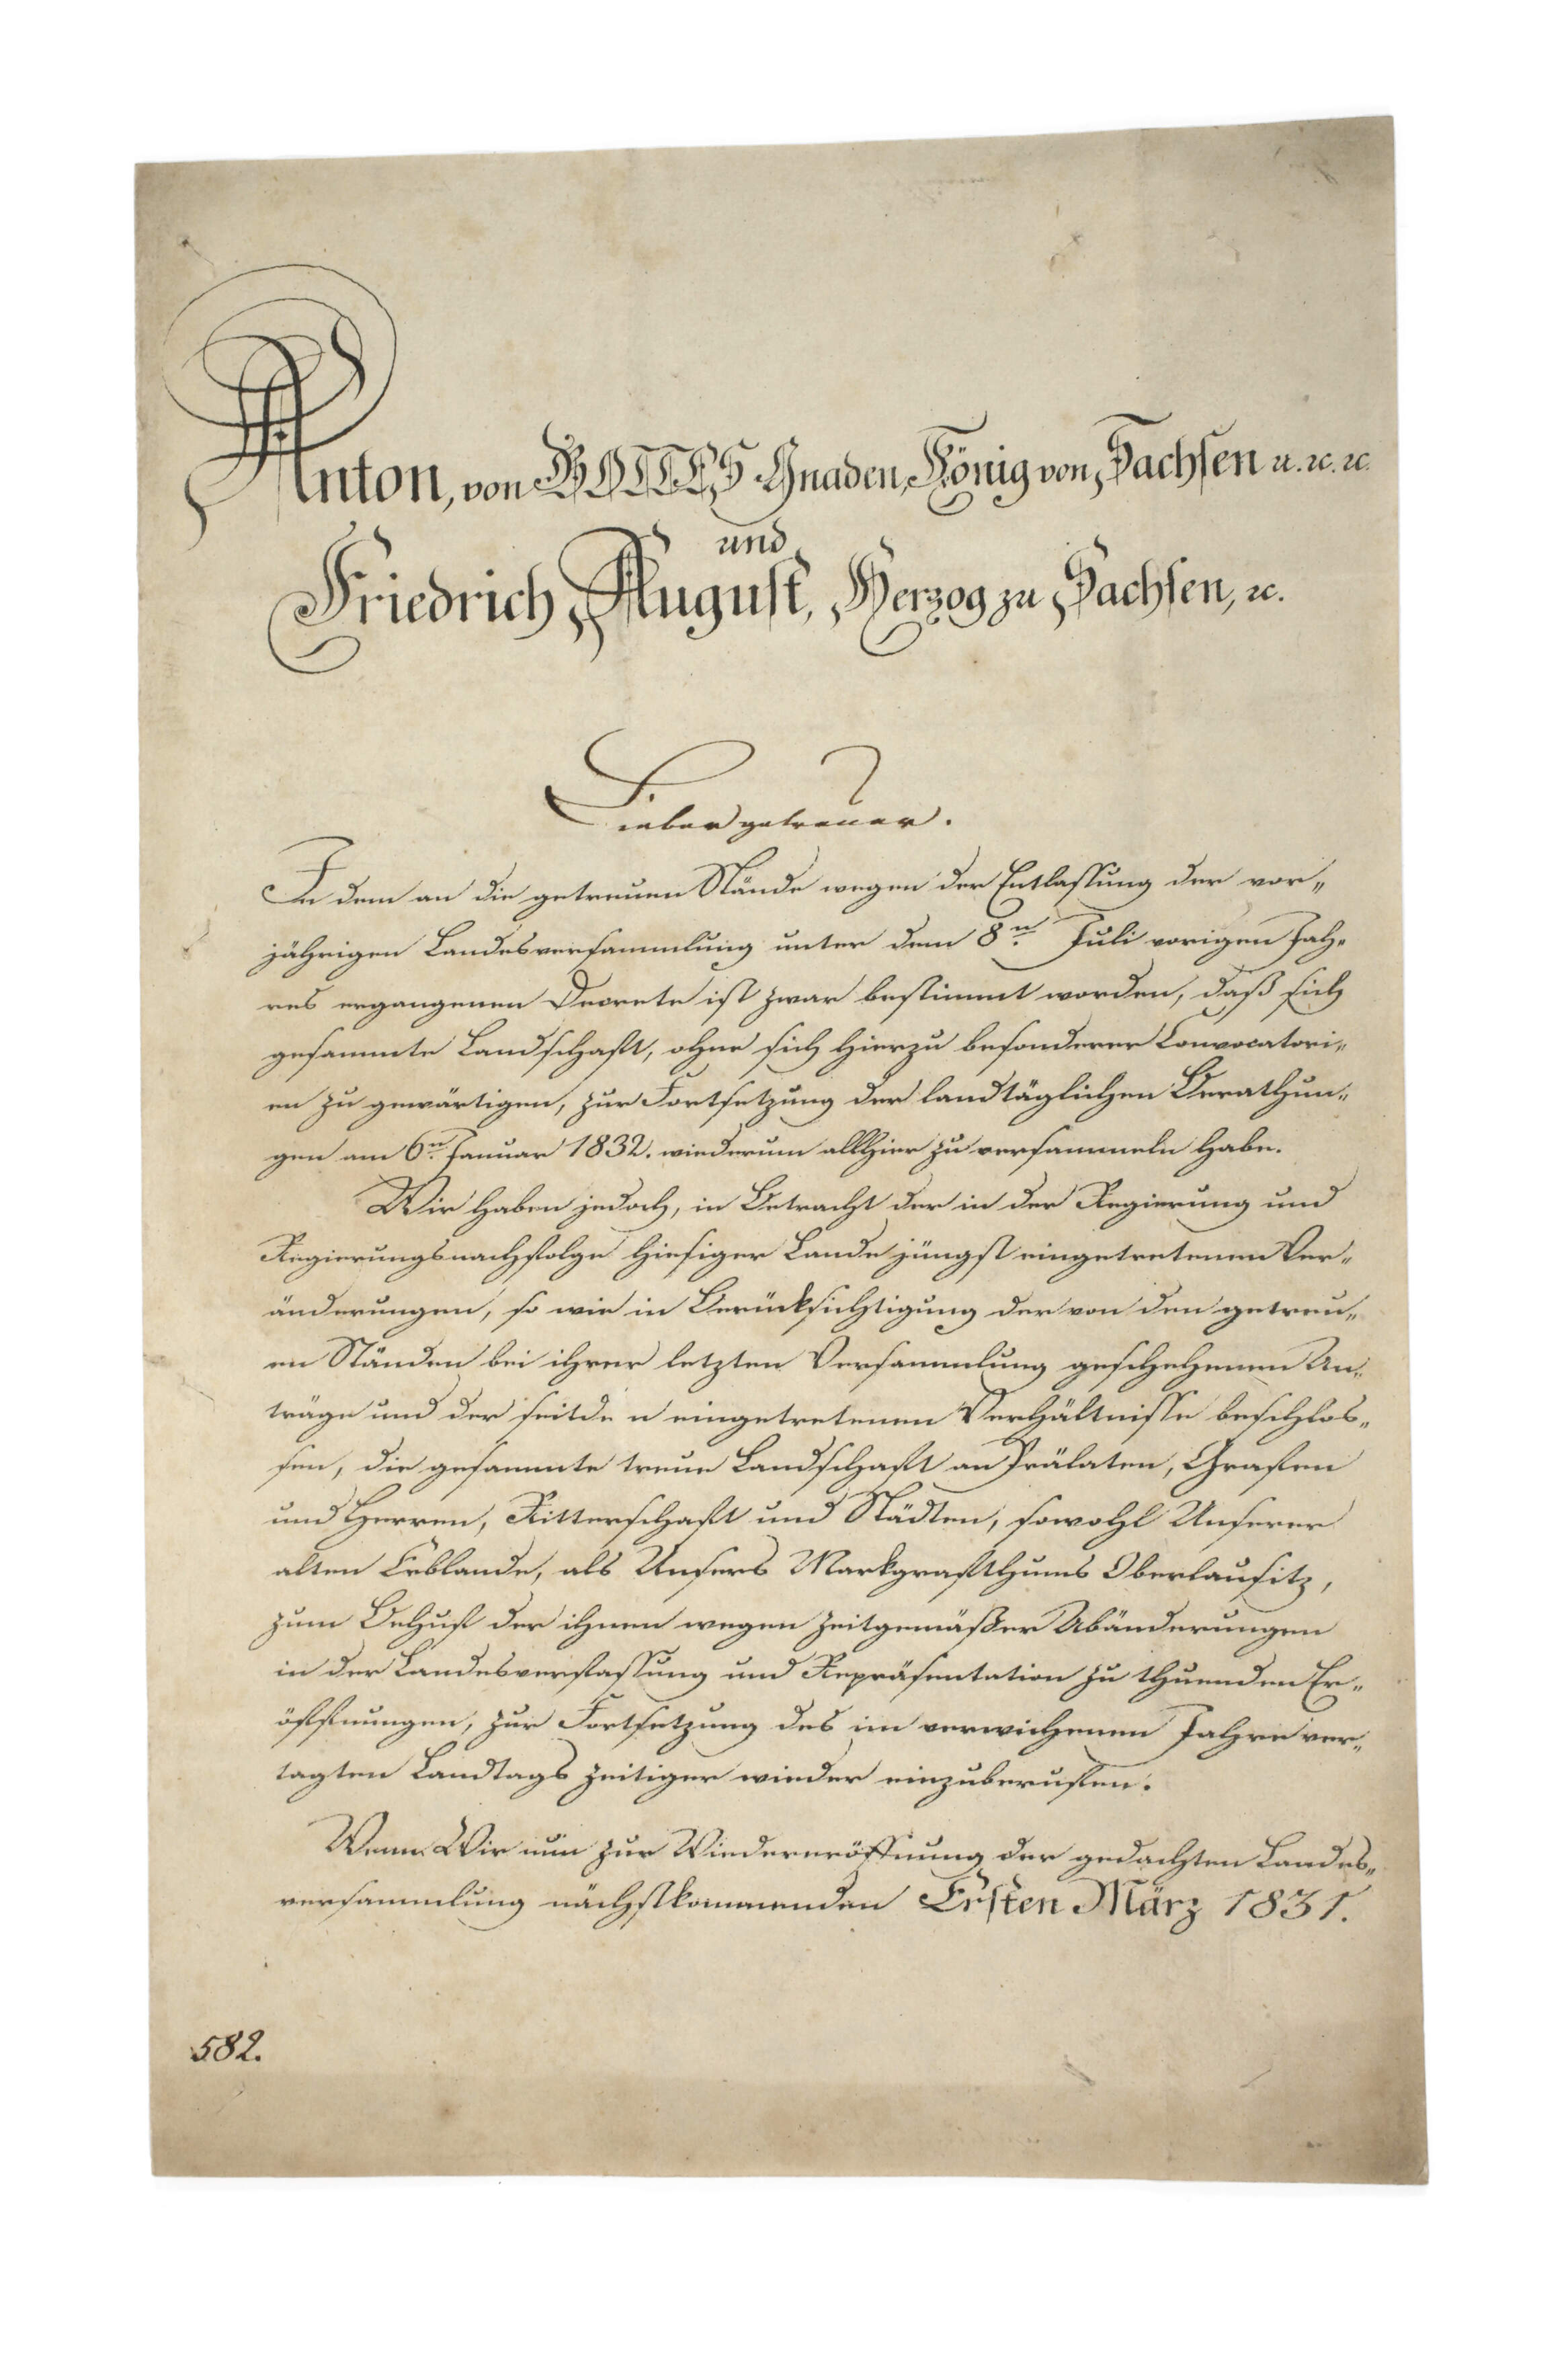 Anton, von GOTTES Gnaden, König von Sachsen u. ꝛc. ꝛc.
und
Friedrich August, Herzog zu Sachsen, ꝛc.
Lieber getreuer.
In dem an die getreuen Stände wegen der Entlaßung der vor„
jährigen Landesversammlung unter dem 8n. Juli vorigen Jah„
res ergangenen Decrete ist zwar bestimmt worden, daß sich
gesammte Landschaft, ohne sich hierzu besonderer Convocatori„
en zu gewärtigen, zur Fortsetzung der landtäglichen Berathun„
gen am 6n. Januar 1832. wiederum allhier zu versammeln habe.
Wir haben jedoch, in Betracht der in der Regierung und
Regierungsnachfolge hiesiger Lande jüngst eingetretenen Ver„
änderungen, so wie in Berücksichtigung der von den getreu„
en Ständen bei ihrer letzten Versammlung geschehenen An„
träge und der seitdem eingetretenen Verhältnisse beschlos„
sen, die gesammte treue Landschaft an Prälaten, Grafen
und Herren, Ritterschaft und Städten, sowohl Unserer
alten Erblande, als Unsers Markgrafthums Oberlausitz,
zum Behuf der ihnen wegen zeitgemäßer Abänderungen
in der Landesverfaßung und Repräsentation zu thuenden Er„
öffnungen, zur Fortsetzung des im verwichenen Jahre ver„
tagten Landtags zeitiger wieder einzuberufen.
Wenn Wir nun zur Wiedereröffnung der gedachten Landes„
versammlung nächstkommenden Ersten März 1831.
582.